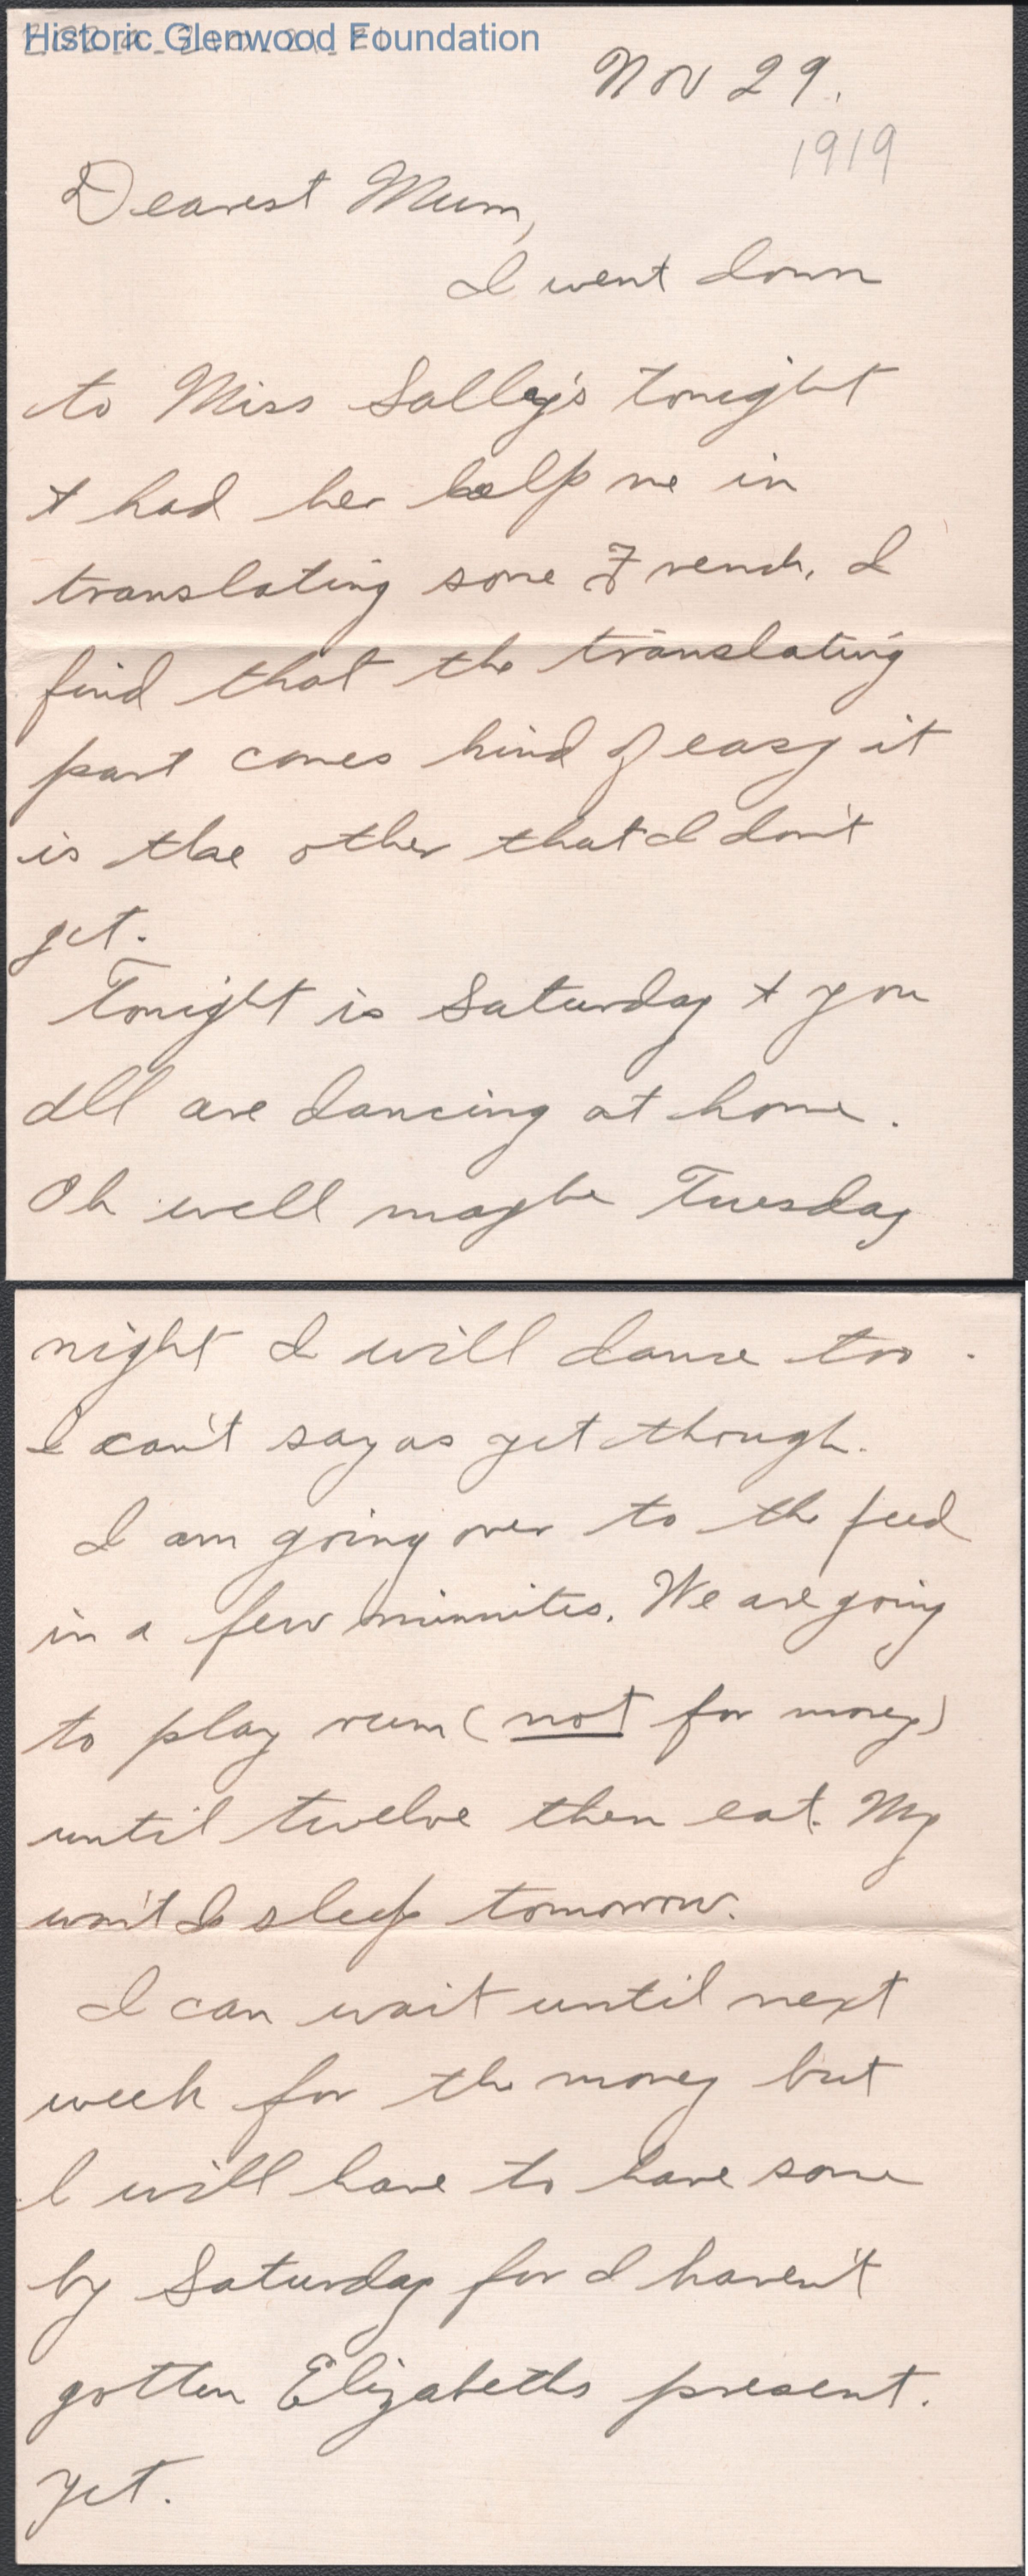 Historic Glenwood Foundation
Nov 29.
1919
Dearest Mum,
I went down
to Miss Salley's tonight
+ had her help me in
translating some French. I
find that the translating
part comes kind of easy it
is the other that I don't
get.
Tonight is Saturday + you
all are dancing at home.
Oh well maybe Tuesday
night I will dance too.
I can't say as yet though.
I am going over to the feed
in a few minnites. We are going
to play rum (not for money)
until twelve then eat. My
won't I sleep tomorrow.
I can wait until next
week for the money but
I will have to have some
by Saturday for I haven't
gotten Elizabeths present.
yet.